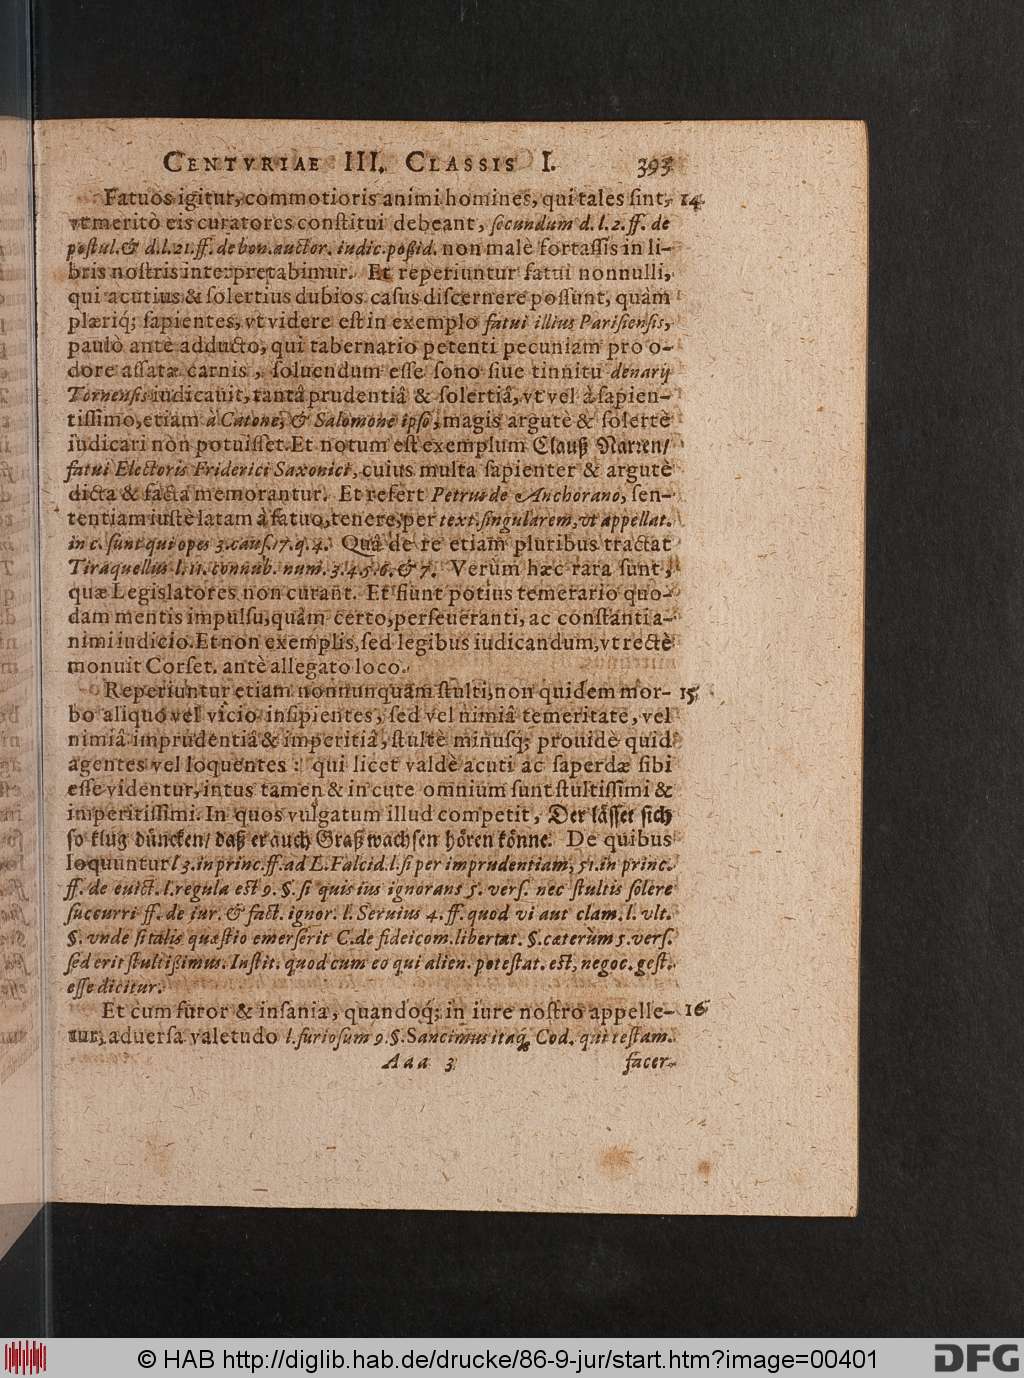 CENTVRIAE III. CLASSIS I. 393
Fatuos igitur, commotioris animi homines, qui tales sint, 14
vt meritò eis curatores constitui debeant, secundum d. l. 2. ff. de
postul. & d. l. 21. ff. de bon. auctor. iudic. possid. non malè fortassis in li-
bris nostris interpretabimur. Et reperiuntur fatui nonnulli,
qui acutius & solertius dubios casus discernere possunt, quàm
plæriq; sapientes, vt videre est in exemplo fatui illius Parisiensis,
paulò antè adducto, qui tabernario petenti pecuniam pro o-
dore assatæ carnis, soluendum esse sono siue tinnitu denarij
Tornensis iudicauit, tantâ prudentiâ & solertiâ, vt vel à sapien-
tissimo, etiam à Catone, & Salomone ipso, magis argutè & solertè
iudicari non potuisset. Et notum est exemplum Clauß Narren/
fatui Electoris Friderici Saxonici, cuius multa sapienter & argutè
dicta & facta memorantur. Et refert Petrus de Anchorano, sen-
tentiam iustè latam à fatuo, tenere, per text. singularem, vt appellat.
in c. sunt qui opes 3. caus. 17. q. 4. Quâ de re etiam pluribus tractat
Tiraquellus l. 11. connub. num. 3. 4. 5. 6. & 7. Verùm hæc rara sunt,
quæ Legislatores non curant. Et fiunt potius temerario quo-
dam mentis impulsu, quàm certo, perseueranti, ac constanti a-
nimi iudicio. Et non exemplis, sed legibus iudicandum, vt rectè
monuit Corset. antè allegato loco.
Reperiuntur etiam nonnunquam stulti, non quidem mor- 15
bo aliquo vel vicio insipientes, sed vel nimiâ temeritate, vel
nimiâ imprudentiâ & imperitiâ, stultè minusq; prouidè quid
agentes vel loquentes: qui licet valdè acuti ac saperdæ sibi
esse videntur, intus tamen & in cute omnium sunt stultissimi &
imperitissimi. In quos vulgatum illud competit, Der lässet sich
so klug düncken/ daß er auch Graß wachsen hören könne. De quibus
loquuntur l 3. in princ. ff. ad L. Falcid. l. si per imprudentiam, 51. in princ.
ff. de euict. l. regula est 9. §. si quis ius ignorans 5. vers. nec stultis solere
succurri ff. de iur. & fact. ignor. l. Seruius 4. ff. quod vi aut clam. l. vlt.
§. vnde si talis quæstio emerserit C. de fideicom. libertat. §. cæterùm 5. vers.
sed erit stultissimus. Instit. quod cum eo qui alien. potestat. est, negoc. gest.
esse dicitur.
Et cùm furor & insania, quandoq; in iure nostro appelle- 16
tur, aduersa valetudo l. furiosum 9. §. Sancimus itaq; Cod. qui testam.
Aaa 3 facer-
© HAB http://diglib.hab.de/drucke/86-9-jur/start.htm?image=00401 DFG